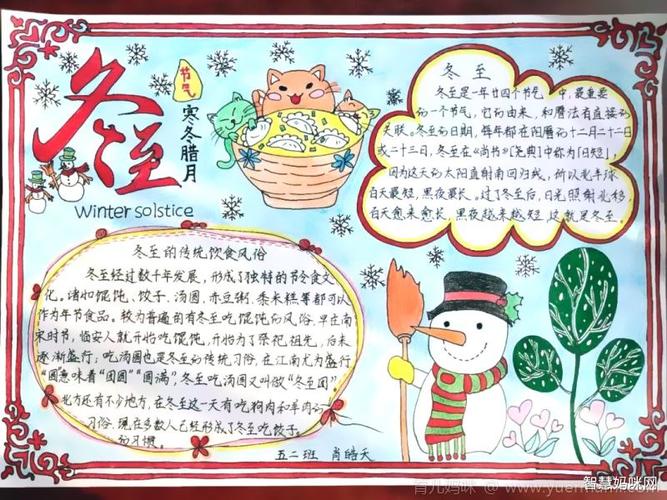 冬至
节气
寒冬腊月
Winter solstice
冬至
冬至是一年廿四个节气中,最重要
的一个节气,它的由来,和曆法有直接的
关联。冬至的日期,每年都在阳曆的十二月二十二日
或二十三日,冬至在《尚书》〔尧典〕中称为「日短」,
因为这天的太阳直射南回归线,所以北半球
白天最短,黑夜最长。过了冬至后,日光照射北移,
白天愈来愈长,黑夜越来越短,这就是冬至。
冬至的传统饮食风俗
冬至经过数千年发展,形成了独特的节令食文
化。诸如馄饨、饺子、汤圆、赤豆粥、黍米糕等都可以
作为年节食品。较为普遍的有冬至吃馄饨的风俗。早在南
宋时节,临安人就开始吃馄饨,开始为了祭祀祖先,后来
逐渐盛行,吃汤圆也是冬至的传统习俗,在江南尤为盛行
"圆意味着"团团""圆满",冬至吃汤圆又叫做"冬至团"
北方还有不少地方,在冬至这一天有吃狗肉和羊肉的
习俗,现在多数人已经形成了冬至吃饺子。
的习惯。
五二班 肖皓天
育儿妈咪 @ www.yuer
智慧妈咪网